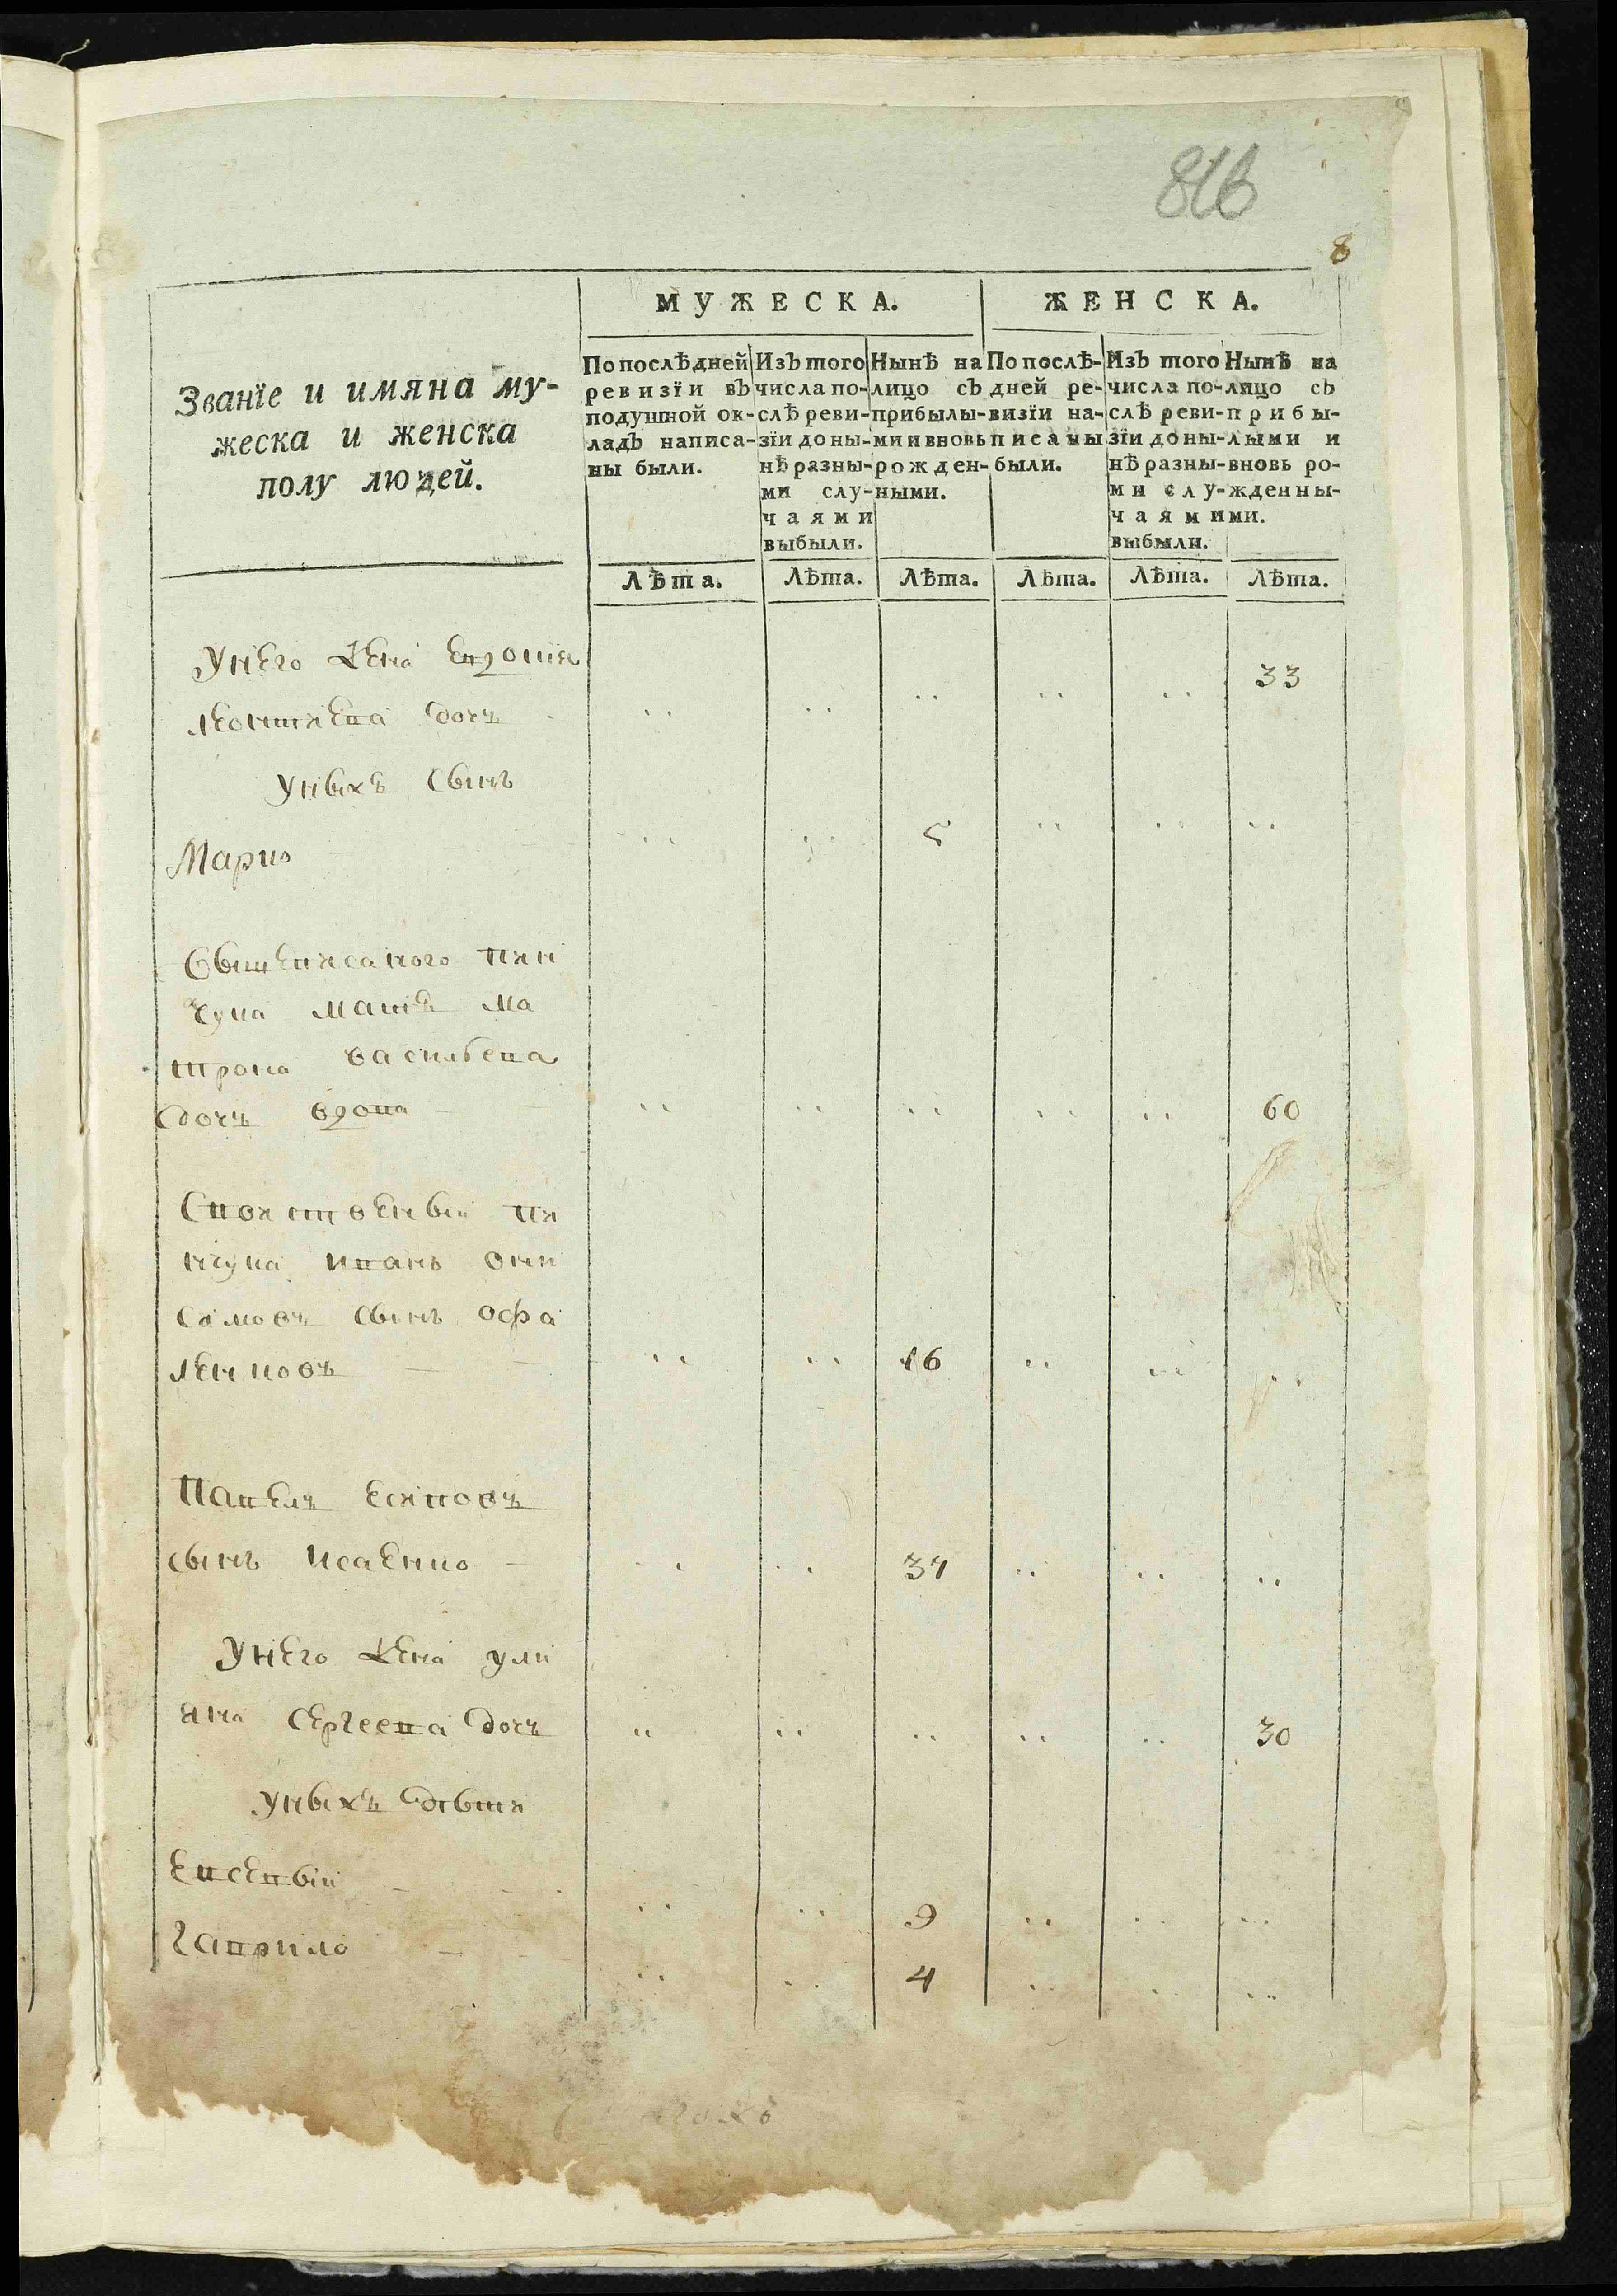 8
МУЖЕСКА. ЖЕНСКА.
Званїе и имяна му-
жеска и женска
полу людей.
По послѣдней ревизїи въ подушной окладѣ написаны были.
Изъ того числа послѣ ревизїи до нынѣ разными случаями выбыли.
Нынѣ на лицо съ прибылыми и вновь рожденными.
По послѣдней ревизїи написаны были.
Изъ того числа послѣ ревизїи до нынѣ разными случаями выбыли.
Нынѣ на лицо съ прибылыми и вновь рожденными.
Лѣта. Лѣта. Лѣта. Лѣта. Лѣта. Лѣта.
Унего жена Евдошия 33
леонтиева дочъ
Уныхъ сынъ
Марко 5
Свышеписаного
мать Ма
трона васильева
дочъ вдова 60
Иванъ они
симовъ сынъ
16
Павелъ есиповъ
сынъ Исаенко 34
Унего жена ули
яна Сергеева дочъ 30
Уныхъ дѣти
Евсевый 9
Гаврило 4